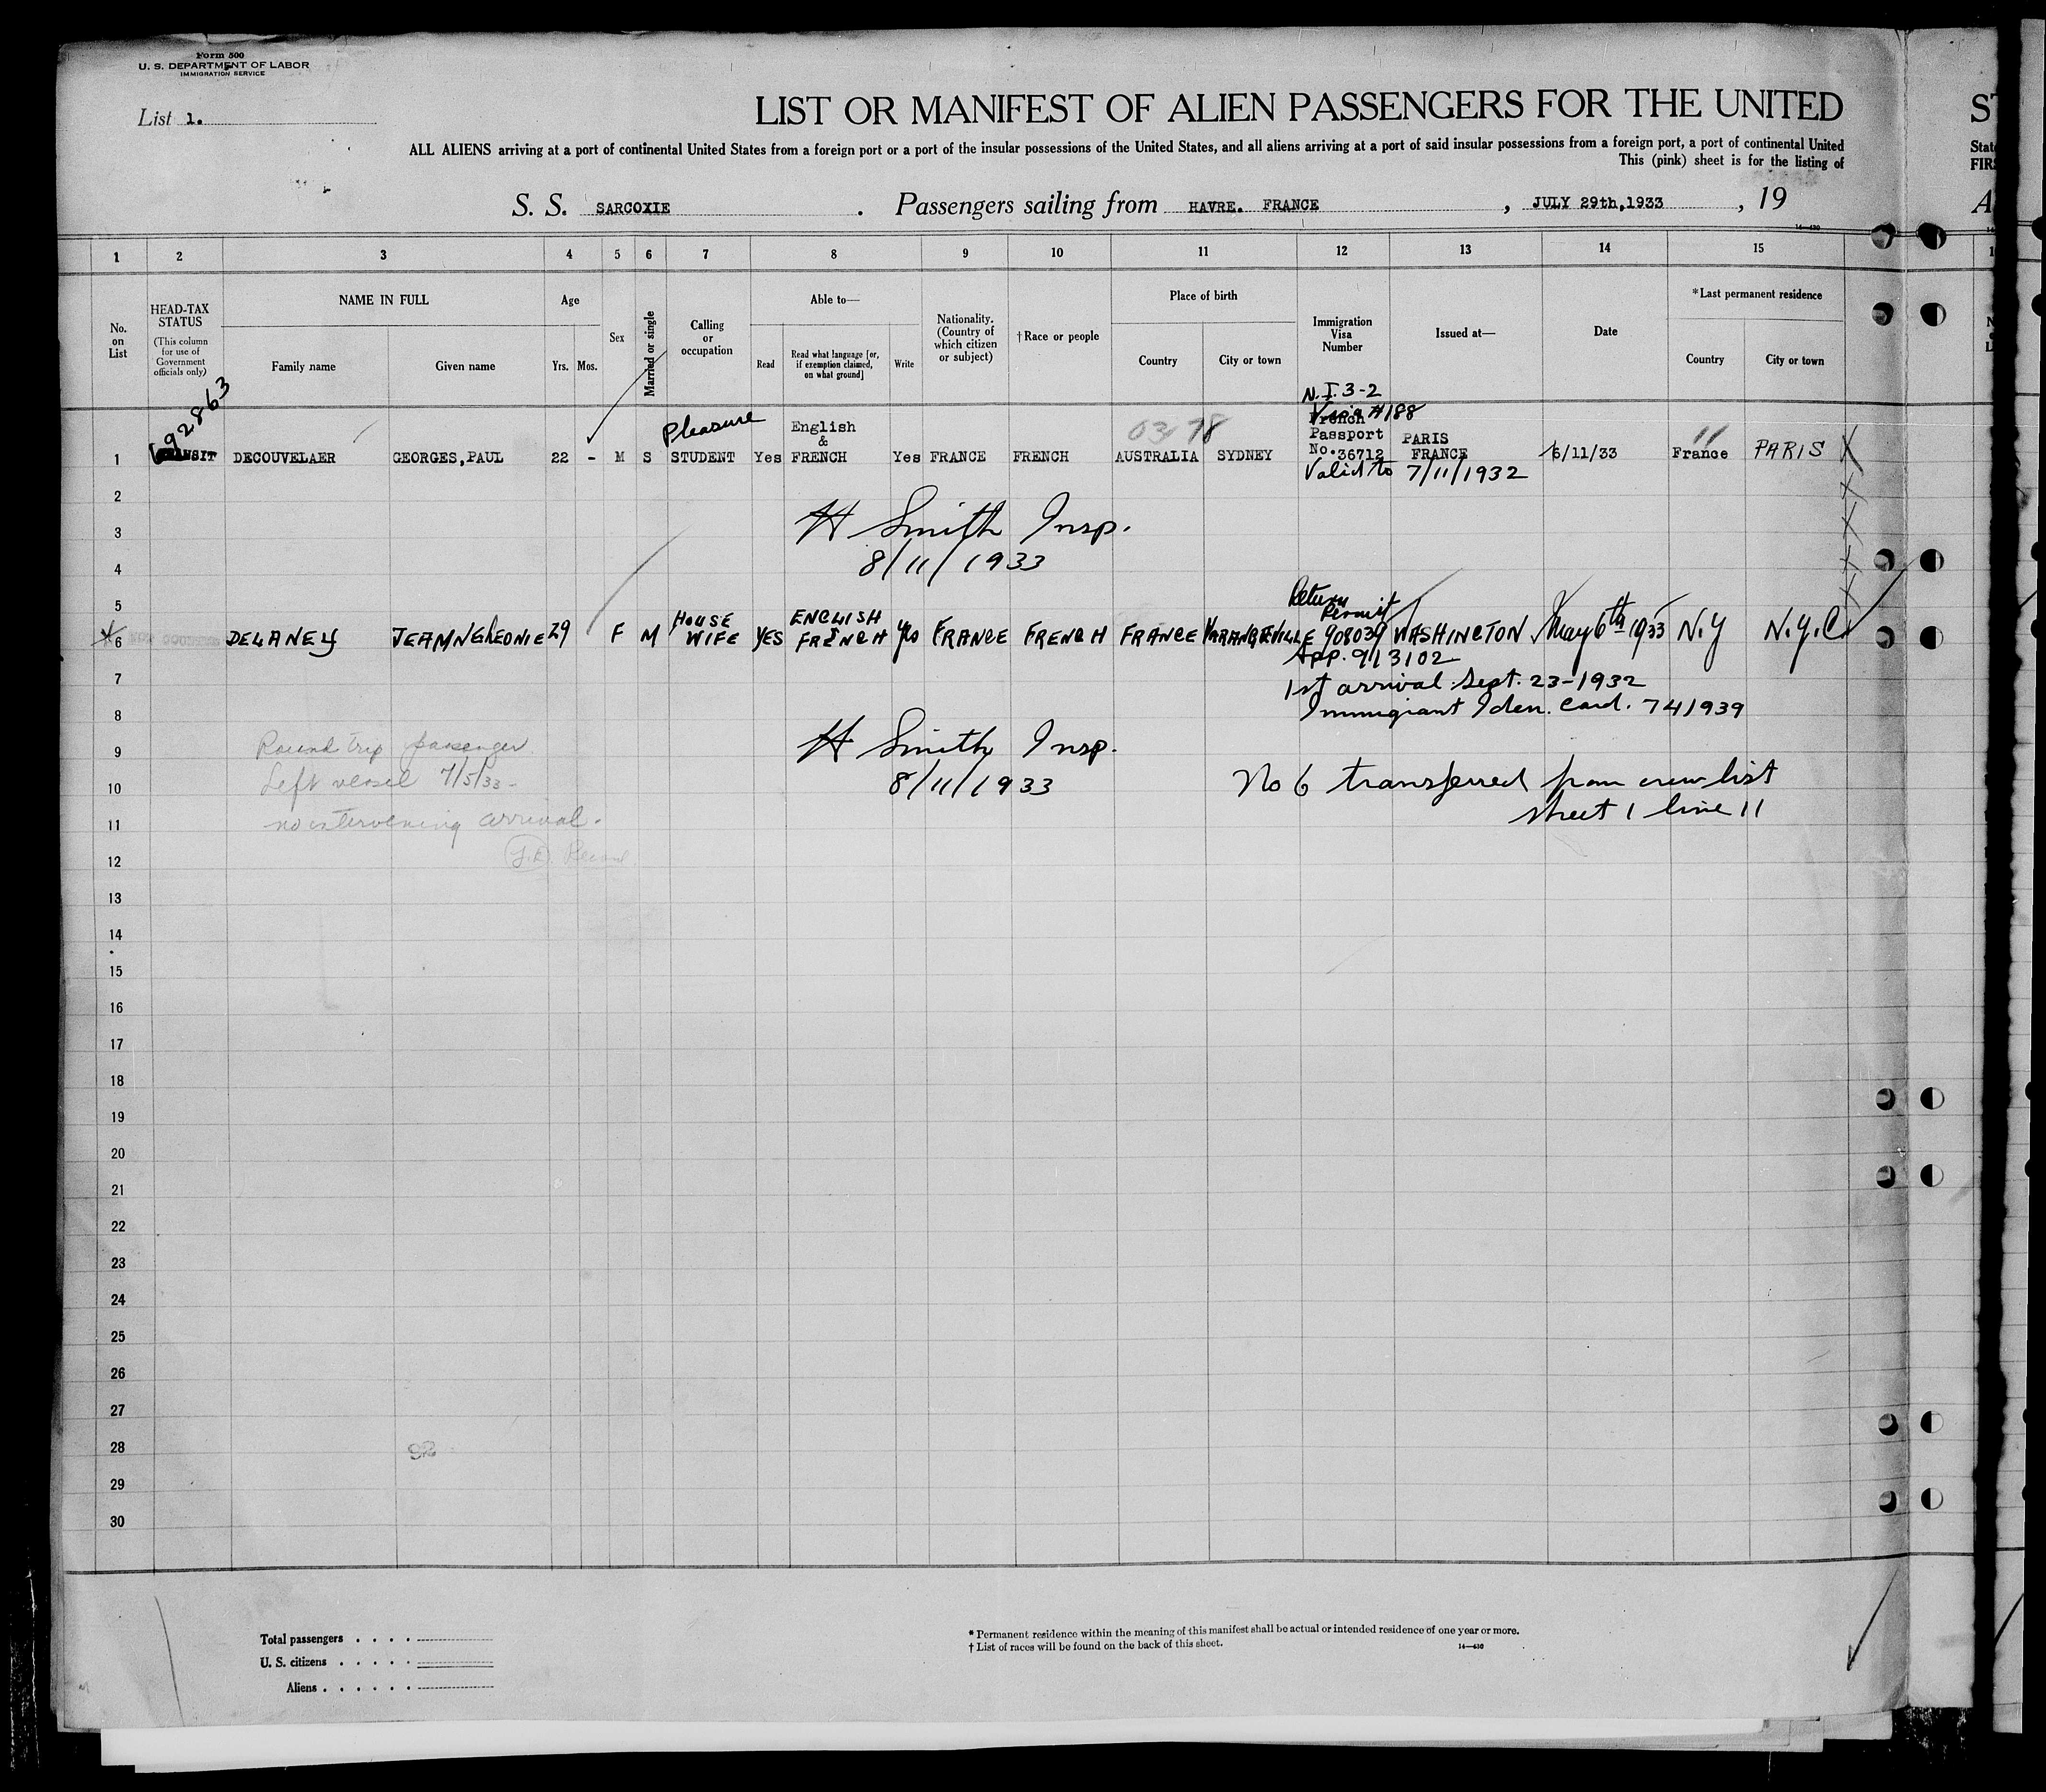 Form 500
U. S. DEPARTMENT OF LABOR
IMMIGRATION SERVICE
List 1.
LIST OR MANIFEST OF ALIEN PASSENGERS FOR THE UNITED
ALL ALIENS arriving at a port of continental United States from a foreign port or a port of the insular possessions of the United States, and all aliens arriving at a port of said insular possessions from a foreign port, a port of continental United
This (pink) sheet is for the listing of
S. S. SARCOXIE . Passengers sailing from HAVRE. FRANCE , JULY 29th,1933 , 19
1 2 3 4 5 6 7 8 9 10 11 12 13 14 15
No. on List
HEAD-TAX STATUS
(This column for use of Government officials only)
NAME IN FULL
Family name Given name
Age
Yrs. Mos.
Sex
Married or single
Calling or occupation
Able to—
Read
Read what language [or, if exemption claimed, on what ground]
Write
Nationality. (Country of which citizen or subject)
† Race or people
Place of birth
Country City or town
Immigration Visa Number
Issued at—
Date
* Last permanent residence
Country City or town
92863
N.I. 3-2
Visa #188
Pleasure English 03 78 French
& Passport PARIS 11
1 TRANSIT DECOUVELAER GEORGES,PAUL 22 - M S STUDENT Yes FRENCH Yes FRANCE FRENCH AUSTRALIA SYDNEY No.36712 FRANCE 6/11/33 France PARIS
Valid to 7/11/1932
2
3 H Smith Insp.
4 8/11/1933
5 Return Permit
6 DELANEY 29 F M HOUSE WIFE YES ENGLISH FRENCH Yes FRANCE FRENCH FRANCE VARANGEVILLE 908039 WASHINGTON May 6th 1933 N.Y N.Y.C
App. 913102
7 1st arrival Sept. 23-1932
8 Immigrant Iden. Card. 741939
9 Round trip passenger H Smith Insp.
10 Left vessel 7/5/33- 8/11/1933 No 6 transferred from crew list
11 no intervening arrival. sheet 1 line 11
12
13
14
15
16
17
18
19
20
21
22
23
24
25
26
27
28
29
30
Total passengers . . . .
U. S. citizens . . . . .
Aliens . . . . . .
* Permanent residence within the meaning of this manifest shall be actual or intended residence of one year or more.
† List of races will be found on the back of this sheet.
14—430